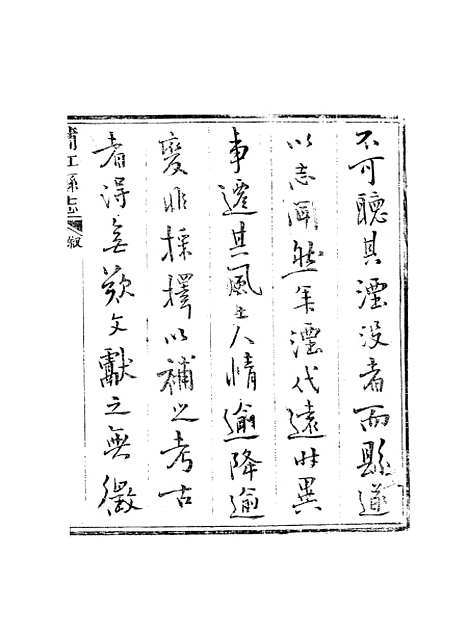 不可聽其湮没者而縣道
以志聞然年湮代遠時異
事遷其風土人情逾降逾
變非採擇以補之考古
者得無歎文獻之無徵
清江縣志 叙